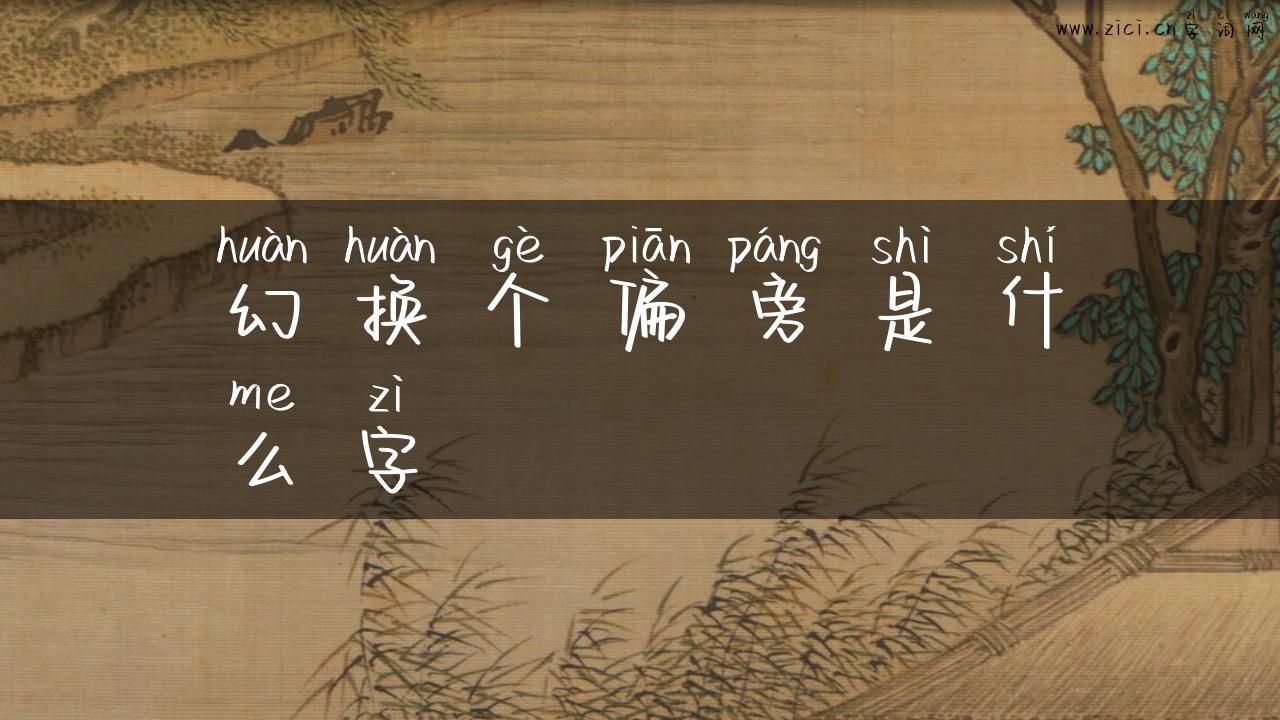 zì cí wǎng
www.zici.cn字词网
huàn huàn gè piān páng shì shí
幻换个偏旁是什
me zì
么字